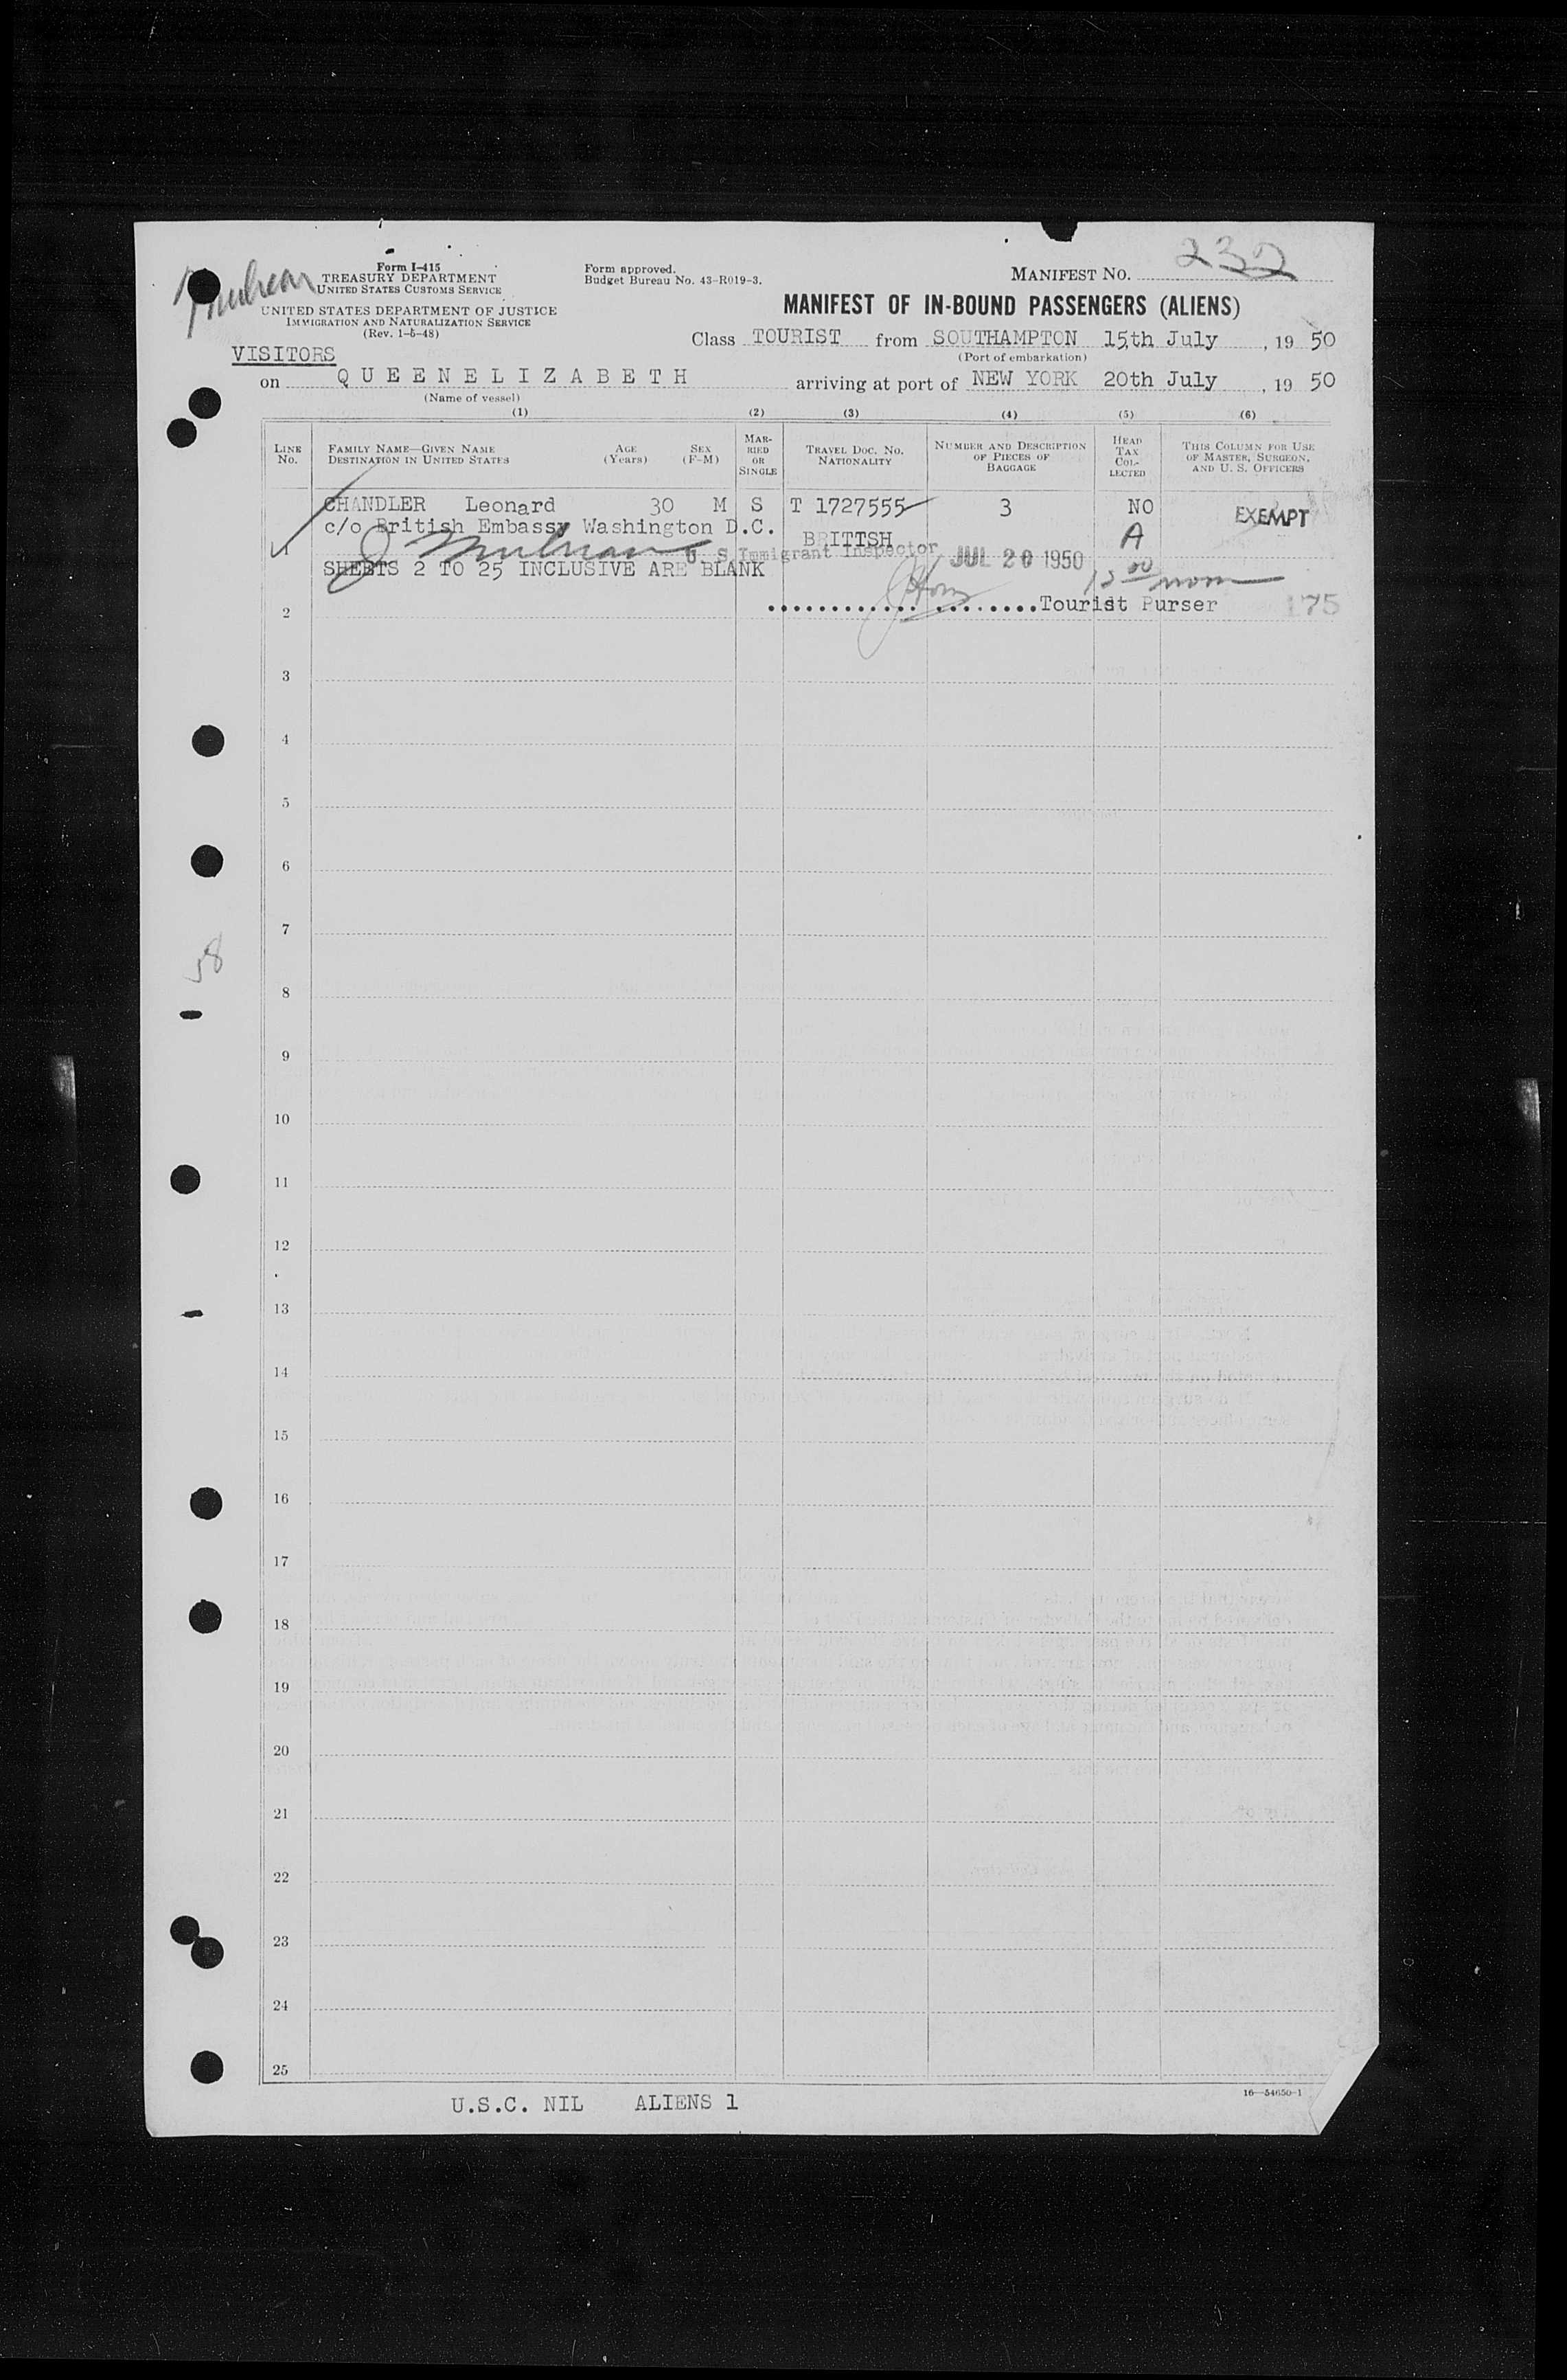 232
Form I-415
TREASURY DEPARTMENT
UNITED STATES CUSTOMS SERVICE
UNITED STATES DEPARTMENT OF JUSTICE
IMMIGRATION AND NATURALIZATION SERVICE
(Rev. 1-5-48)
Form approved.
Budget Bureau No. 43-R019-3.
MANIFEST NO.
MANIFEST OF IN-BOUND PASSENGERS (ALIENS)
Class TOURIST from SOUTHAMPTON 15th July, 19 50
(Port of embarkation)
VISITORS
on QUEENELIZABETH arriving at port of NEW YORK 20th July, 19 50
(Name of vessel)
(1) (2) (3) (4) (5) (6)
LINE No. FAMILY NAME—GIVEN NAME DESTINATION IN UNITED STATES AGE (Years) SEX (F-M) MARRIED OR SINGLE TRAVEL DOC. NO. NATIONALITY NUMBER AND DESCRIPTION OF PIECES OF BAGGAGE HEAD TAX COLLECTED THIS COLUMN FOR USE OF MASTER, SURGEON, AND U. S. OFFICERS
CHANDLER Leonard 30 M S T 1727555 3 NO EXEMPT
c/o British Embassy Washington D.C. BRITISH A
1
U S Immigrant Inspector JUL 20 1950
SHEETS 2 TO 25 INCLUSIVE ARE BLANK 12 00 noon
2 Tourist Purser 175
3
4
5
6
7
58
8
9
10
11
12
13
14
15
16
17
18
19
20
21
22
23
24
25
U.S.C. NIL ALIENS 1
16—54650-1